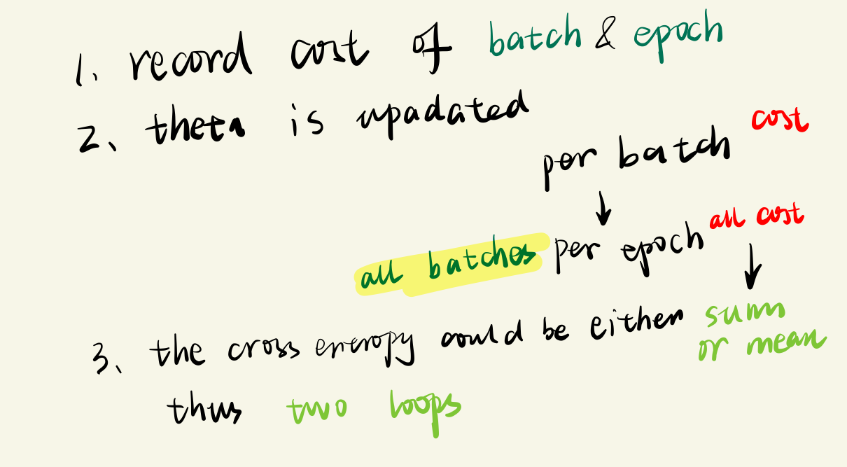 1. record cost of batch & epoch
2. theta is upadated
per batch cost
all batches per epoch all cost
3. the cross eneropy could be either sum or mean
thus two loops